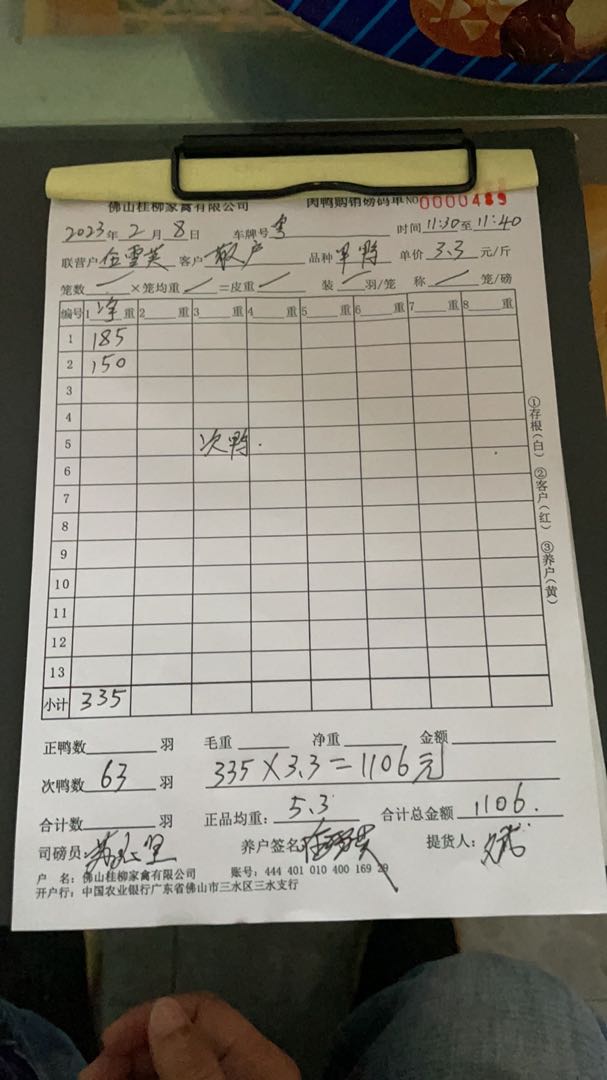 佛山桂柳家禽有限公司 肉鸭购销磅码单 NO 0000489
2023年 2月 8日 车牌号 粤 时间 11:30至 11:40
联营户 客户 散户 品种 单价 3.3 元/斤
笼数 ×笼均重 =皮重 装 羽/笼 称 笼/磅
编号 1 净 重 2 重 3 重 4 重 5 重 6 重 7 重 8 重
1 185
2 150
3
4
5 次鸭.
6
7
8
9
10
11
12
13
小计 335
①存根(白) ②客户(红) ③养户(黄)
正鸭数 羽 毛重 净重 金额
次鸭数 63 羽 335×3.3=1106元
合计数 羽 正品均重: 5.3 合计总金额 1106.
司磅员: 养户签名 提货人:
户 名: 佛山桂柳家禽有限公司 账号: 444 401 010 400 169 29
开户行: 中国农业银行广东省佛山市三水区三水支行